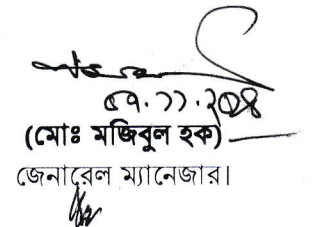 ০৭.১১.২০২৪
(মোঃ মজিবুল হক)
জেনারেল ম্যানেজার।